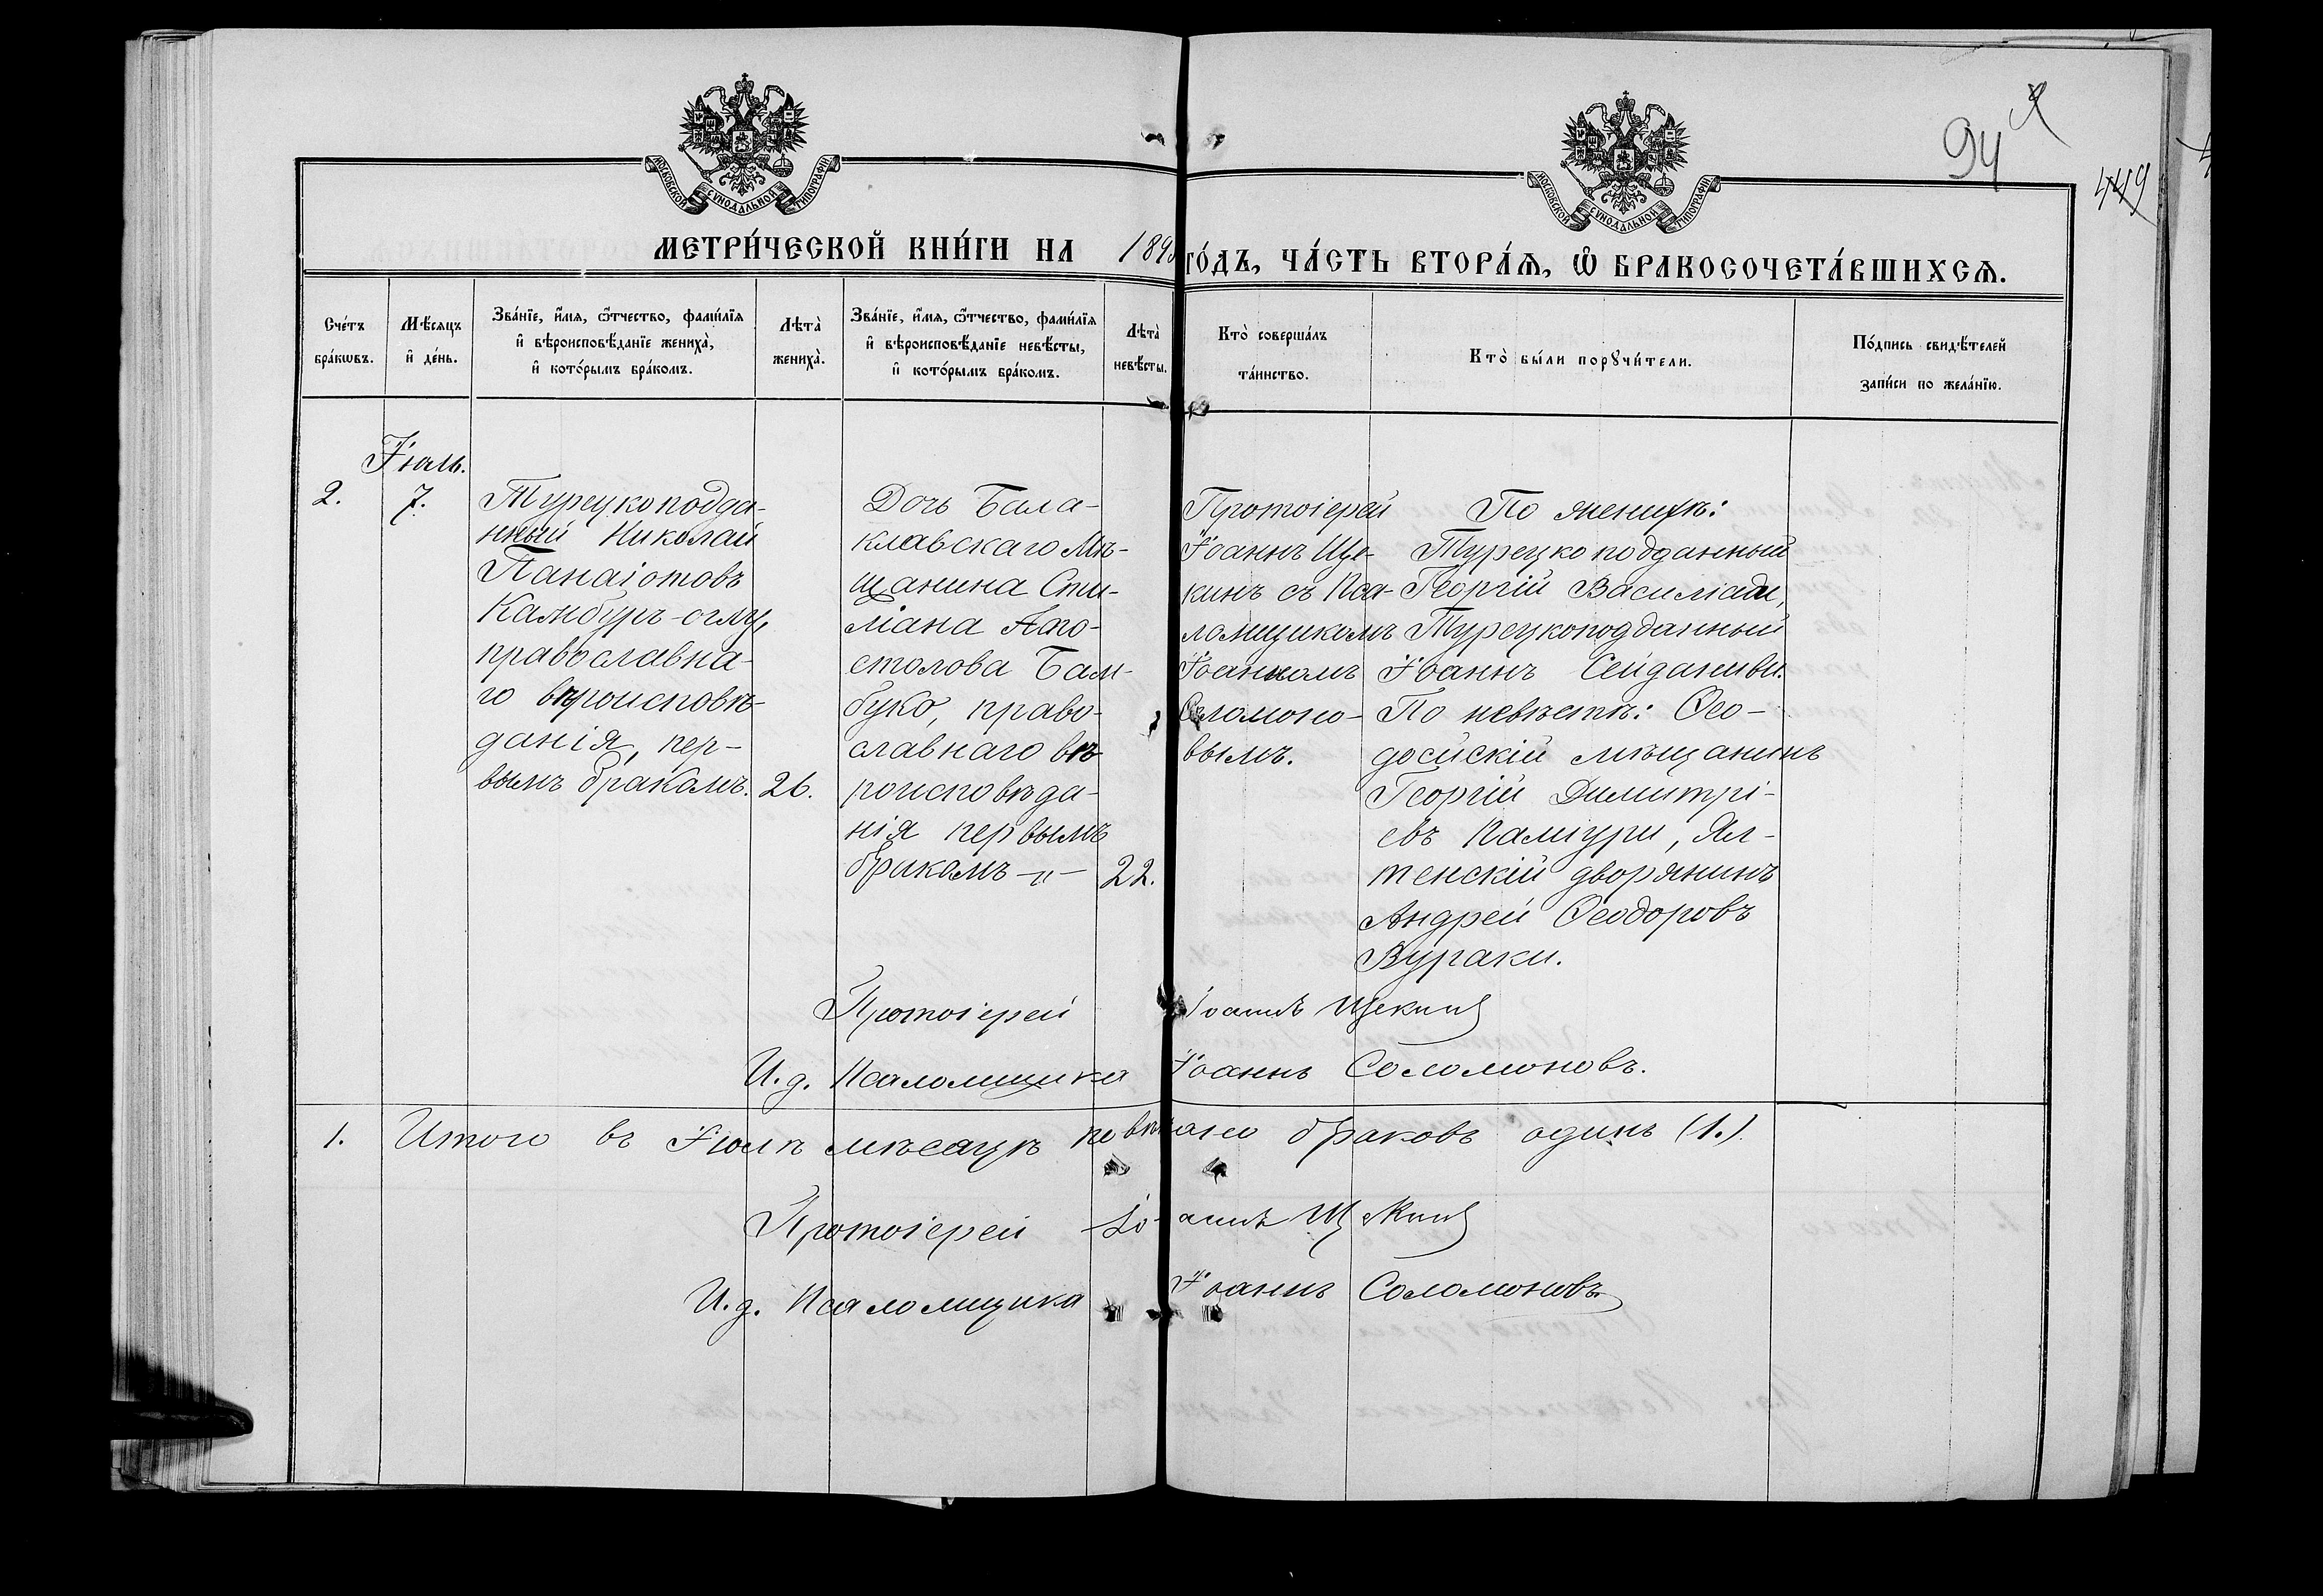 94
449
МОСКОВСКОЙ СѴНОДАЛЬНОЙ ТИПОГРАФІИ
МОСКОВСКОЙ СѴНОДАЛЬНОЙ ТИПОГРАФІИ
МЕТРИ́ЧЕСКОЙ КНИ́ГИ НА 189
ГО́ДЪ, ЧА́СТЬ ВТОРА́Ѧ, Ѡ҆ БРАКОСОЧЕТА́ВШИХСѦ.
Сче́тъ
бра́кѡвъ.
Мѣ́сѧцъ
и҆ де́нь.
Зва́нїе, и҆́мѧ, ѻ҆́тчество, фами́лїѧ
и҆ вѣроисповѣ́данїе жениха̀,
и҆ кото́рымъ бра́комъ.
Лѣта̀
жениха̀.
Зва́нїе, и҆́мѧ, ѻ҆́тчество, фами́лїѧ
и҆ вѣроисповѣ́данїе невѣ́сты,
и҆ кото́рымъ бра́комъ.
Лѣта̀
невѣ́сты.
Кто̀ соверша́лъ
та́инство.
Кто̀ бы́ли порꙋчи́тели.
По́дпись свидѣ́телей
за́писи по жела́нїю.
Іюль.
2.
7.
Турецкоподда-
нный Николай
Панаіотовъ
Камбуръ-оглу,
православна-
го вѣроисповѣ-
данія, пер-
вымъ бракомъ.
26.
Дочь Бала-
клавскаго Мѣ-
щанина Сти-
ліана Апо-
столова Бам-
буко, право-
славнаго вѣ
роисповѣда-
нія первымъ
бракомъ -"-
22.
Протоіерей
Іоаннъ Ще-
кинъ съ Пса-
ломщикомъ
Іоанномъ
Соломоно-
вымъ.
По женихѣ:
Турецкоподданный
Георгій Василіади,
Турецкоподданный
Іоаннъ Сейданиви.
По невѣстѣ: Ѳео-
досійскій мѣщанинъ
Георгій Димитрі-
евъ Палиури, Ял-
тенскій дворянинъ
Андрей Ѳеодоровъ
Вураки.
Протоіерей Іоаннъ Щекинъ
И. д. Псаломщика Іоаннъ Соломоновъ.
1. Итого въ Іюлѣ мѣсяцѣ повѣнчано браковъ одинъ (1.).
Протоіерей Іоаннъ Щекинъ
И. д. Псаломщика Іоаннъ Соломоновъ